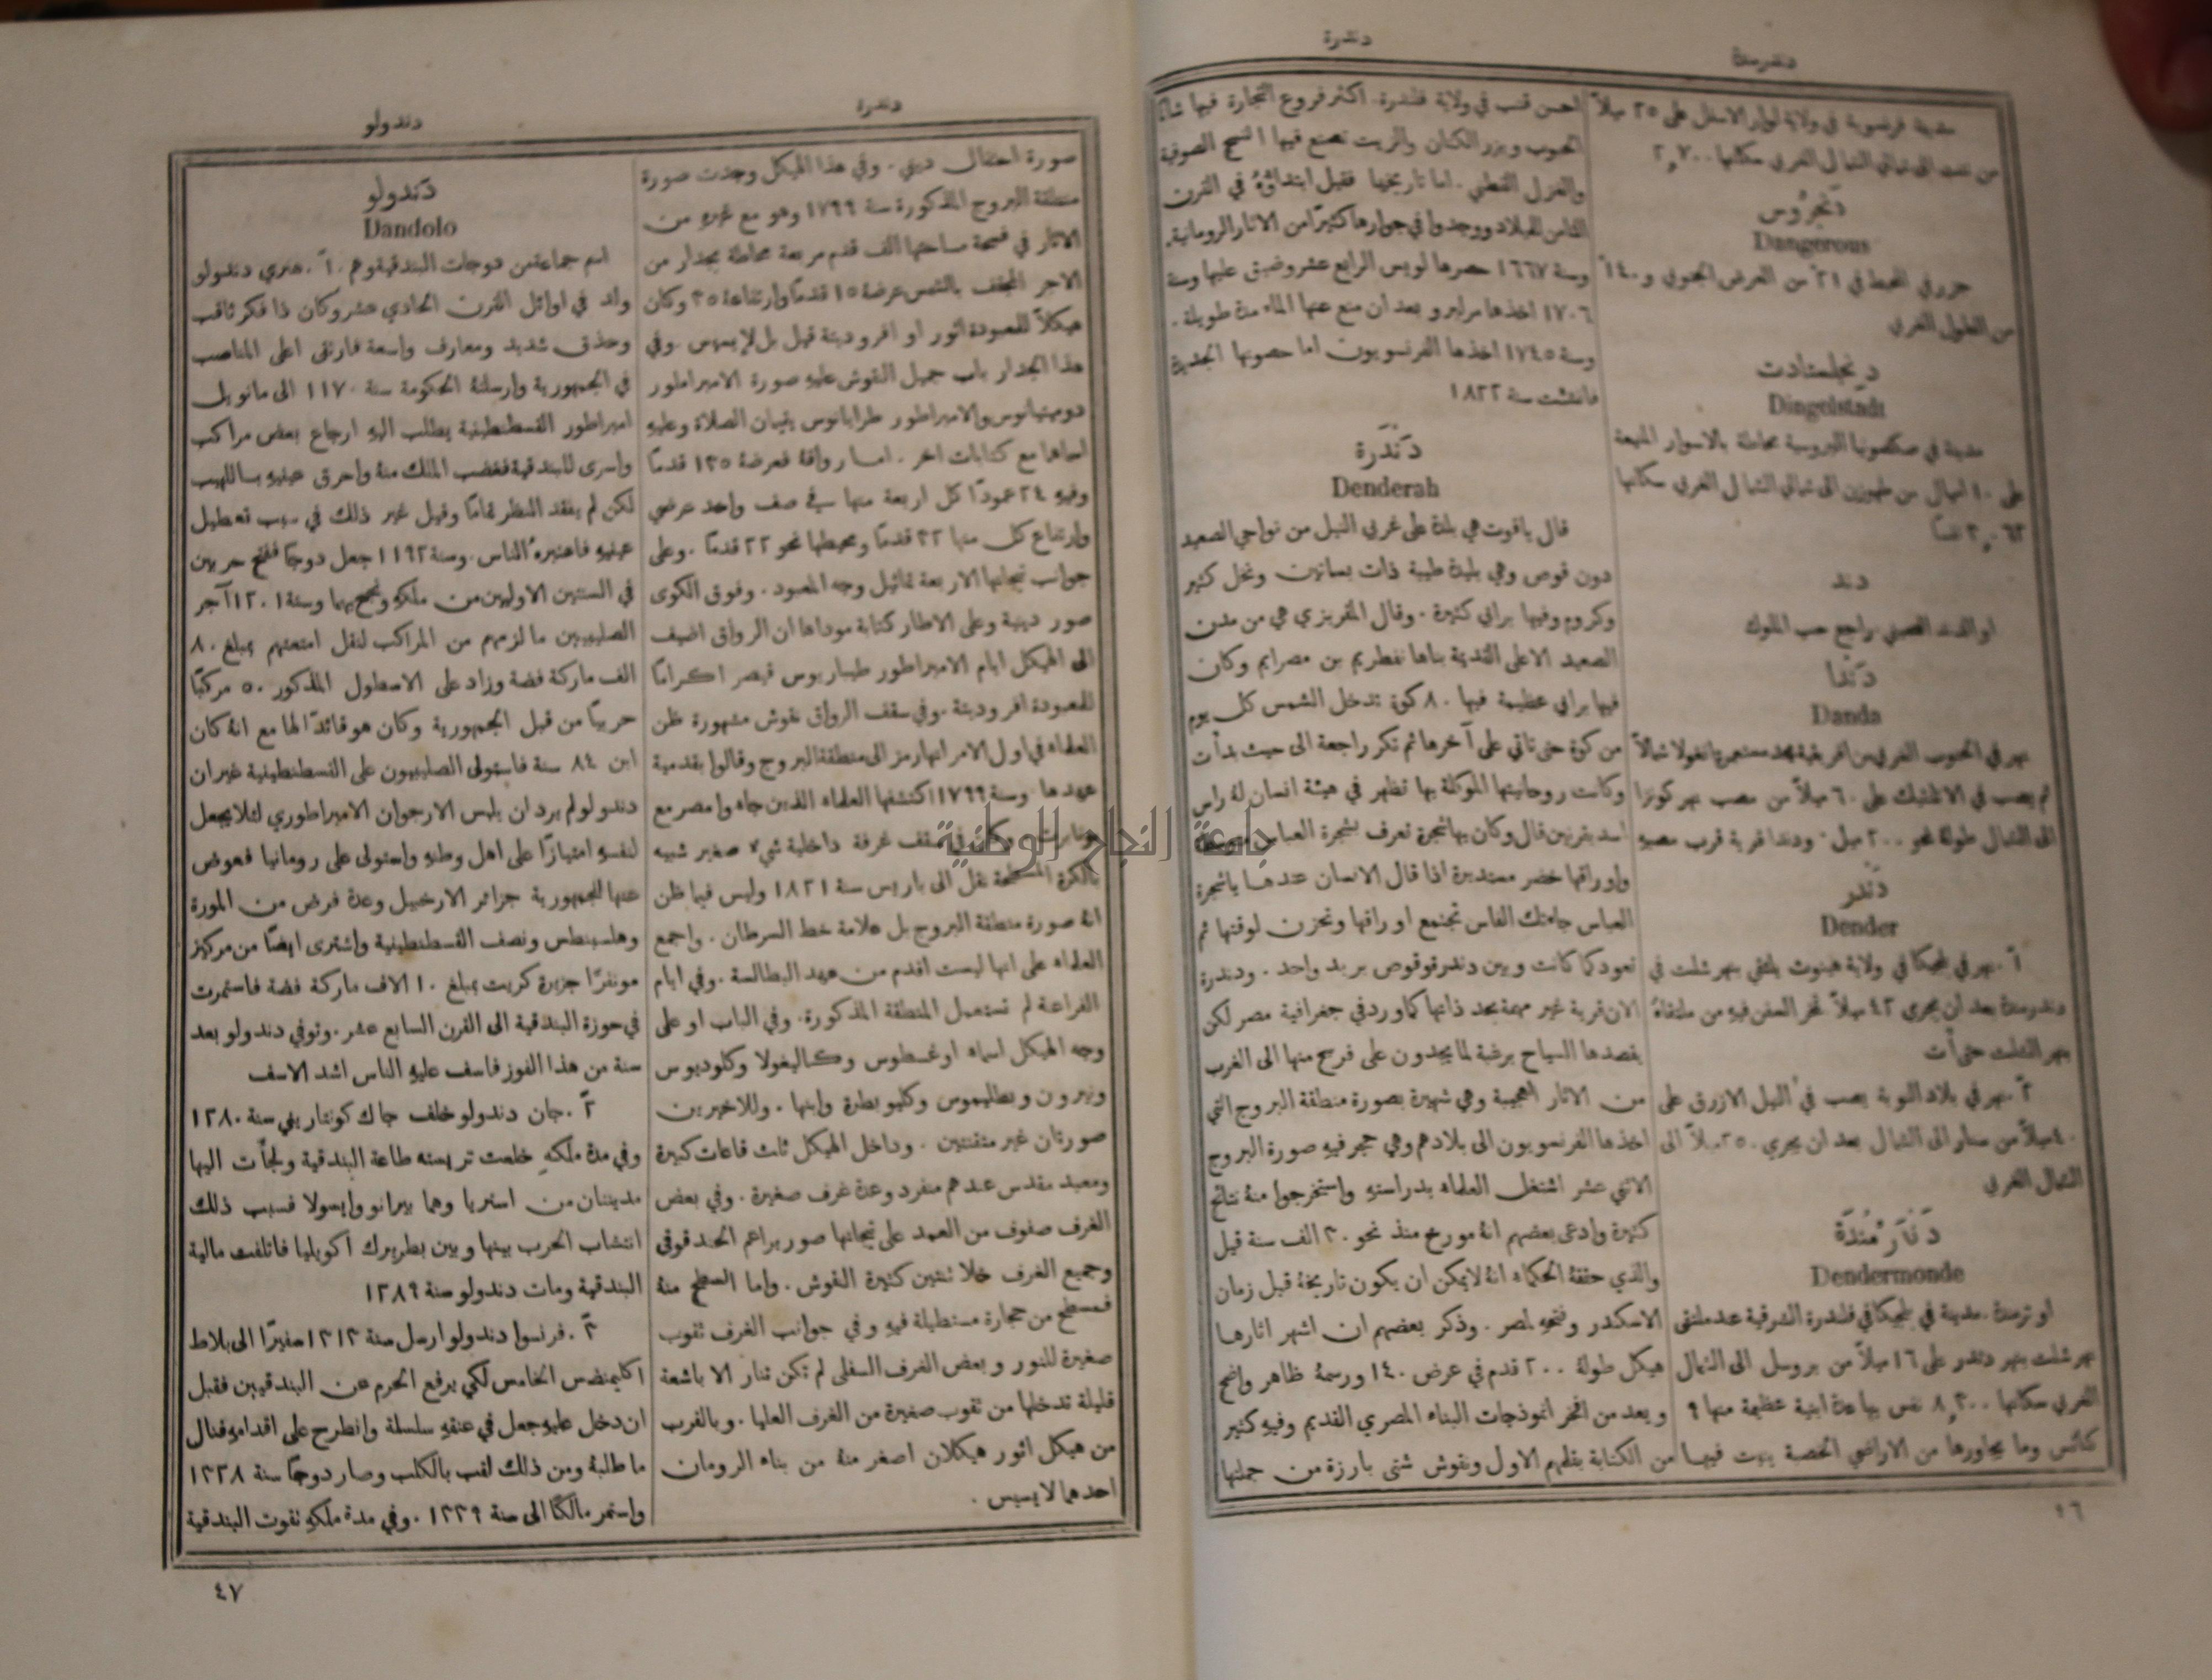 دندرمندة
دندرة
مدينة فرنسوية في ولاية لوار الاسفل على ٢٥ ميلاً
من ننت الى شمالي الشمال الغربي سكانها ٢,٧٠٠
دَنجرُوس
Dangerous
جزر في المحيط في ٢١ من العرض الجنوبي و١٤٠
من الطول الغربي
دِنجلستادت
Dingelstadt
مدينة في صكسونيا البروسية محاطة بالاسوار المنيعة
على ١٠ اميال من ملهوزن الى شمالي الشمال الغربي سكانها
دند
او الدند الصيني راجع حب الملوك
دَندا
Danda
نهر في الجنوب الغربي من افريقية
ثم يصب في الاتلنتيك على ٦٠ ميلاً من مصب نهر كونزا
الى الشمال طولة نحو ٢٠٠ ميل. ودندا قرية قرب مصبهِ
دَندر
Dender
١ً. نهر في بلجيكا في ولاية هينوت يلتقي بنهر شلت في
دندرمندة بعد ان يجري ٤٢ ميلاً تمخر السفن فيهِ من ملتقاهُ
بنهر الشلت حتى أت
٢ً. نهر في بلاد النوبة يصب في النيل الازرق على
٤٠ ميلاً من سنار الى الشمال بعد ان يجري ٢٥٠ ميلاً الى
الشمال الغربي
دَندَرمُندَة
Dendermonde
او ترمندة. مدينة في بلجيكا في فلندرة الشرقية عند ملتقى
نهر شلت بنهر دندر على ١٦ ميلاً من بروسل الى الشمال
الغربي سكانها ٨,٣٠٠ نفس بها عدة ابنية عظيمة منها ٩
كنائس وما يجاورها من الاراضي الخصبة ينبت فيها
احسن قنب في ولاية فلندرة. اكثر فروع التجارة فيها شأنًا
الحبوب وبزر الكتان والزيت تصنع فيها النسج الصوفية
والغزل القطني. اما تاريخها فقيل ابتداؤهُ في القرن
الثامن للميلاد ووجدوا في جوارها كثيرًا من الاثار الرومانية.
وسنة ١٦٦٧ حصرها لويس الرابع عشر وضيق عليها وسنة
١٧٠٦ اخذها مرلبرو بعد ان منع عنها الماء مدة طويلة.
وسنة ١٧٤٥ اخذها الفرنسويون اما حصونها الجديدة
فانشئت سنة ١٨٢٢
دَندَرة
Denderah
قال ياقوت هي بلدة على غربي النيل من نواحي الصعيد
دون قوص وهي بليدة طيبة ذات بساتين ونخل كثير
وكروم وفيها برابي كثيرة. وقال المقريزي هي من مدن
الصعيد الاعلى القديمة بناها نفطريم بن مصرايم وكان
فيها برابي عظيمة فيها ٨٠ كوة تدخل الشمس كل يوم
من كوة حتى تاتي على آخرها ثم تكر راجعة الى حيث بدأت
وكانت روحانيتها الموكلة بها تظهر في هيئة انسان لهُ راس
اسد بقرنين قال وكان بها شجرة تعرف بشجرة العباس
واوراقها خضر مستديرة اذا قال الانسان عندها يا شجرة
العباس جاءتك الفاس تجتمع اوراقها وتحزن لوقتها ثم
تعود كما كانت وبين دندرة وقوص بريد واحد. ودندرة
الان قرية غير مهمة بحد ذاتها كما ورد في جغرافية مصر لكن
يقصدها السياح برغبة لما يجدون على فرسخ منها الى الغرب
من الاثار العجيبة وهي شهيرة بصورة منطقة البروج التي
اخذها الفرنسويون الى بلادهم وهي حجر فيهِ صورة البروج
الاثني عشر اشتغل العلماء بدراستهِ واستخرجوا منهُ نتائج
كثيرة وادعى بعضهم انهُ مورخ منذ نحو ٢٠ الف سنة قبل
والذي حققهُ الحكماء انهُ لا يمكن ان يكون تاريخهُ قبل زمان
الاسكندر وفتحهِ لمصر. وذكر بعضهم ان اشهر اثارها
هيكل طولهُ ٢٠٠ قدم في عرض ١٤٠ ورسمهُ ظاهر واضح
ويعد من افخر انموذجات البناء المصري القديم وفيهِ كثير
من الكتابة بقلمهم الاول ونقوش شتى بارزة من جملتها
١٦
دندرة
دندولو
صورة احتفال ديني. وفي هذا الهيكل وجدت صورة
منطقة البروج المذكورة سنة ١٧٩٩ وهو مع غيرهِ من
الاثار في فسحة مساحتها الف قدم مربعة محاطة بجدار من
الاجر المجفف بالشمس عرضهُ ١٥ قدمًا وارتفاعهُ ٣٥ وكان
هيكلاً للمعبودة اثور او افروديتة قيل بل لإيسيس. وفي
هذا الجدار باب جميل النقوش عليهِ صورة الامبراطور
دوميتيانوس والامبراطور طرايانوس يقيمان الصلاة وعليهِ
اسماها مع كتابات اخر. اما رواقهُ فعرضهُ ١٣٥ قدمًا
وفيهِ ٢٤ عمودًا كل اربعة منها في صف واحد عرضي
وارتفاع كل منها ٣٢ قدمًا ومحيطها نحو ٢٢ قدمًا. وعلى
جوانب تيجانها الاربعة تماثيل وجه المعبود. وفوق الكوى
صور دينية وعلى الاطار كتابة موداها ان الرواق اضيف
الى الهيكل ايام الامبراطور طيباريوس قيصر اكرامًا
للمعبودة افروديتة. وفي سقف الرواق نقوش مشهورة ظن
العلماء في اول الامر انها رمز الى منطقة البروج وقالوا بقدمية
عهدها. وسنة ١٧٩٩ اكتشفها العلماء الذين جاءوا مصر مع
بونابرت. وكان في سقف غرفة داخلية شيء صغير شبيه
بالكرة المسطحة نقل الى باريس سنة ١٨٢١ وليس فيما ظن
انهُ صورة منطقة البروج بل علامة خط السرطان. واجمع
العلماء على انها ليست اقدم من عهد البطالسة. وفي ايام
الفراعنة لم تستعمل المنطقة المذكورة. وفي الباب او على
وجه الهيكل اسماء اوغسطوس وكاليغولا وكلوديوس
ونيرون وبطليموس وكليوبطرة وابنها. وللاخيرين
صورتان غير متقنتين. وداخل الهيكل ثلث قاعات كبيرة
ومعبد مقدس عندهم منفرد وعدة غرف صغيرة. وفي بعض
الغرف صفوف من العمد على تيجانها صور براعم الحندقوقى
وجميع الغرف خلا ثنتين كثيرة النقوش. واما السطح منهُ
فمسطح من حجارة مستطيلة فيهِ وفي جوانب الغرف ثقوب
صغيرة للنور وبعض الغرف السفلى لم تكن تنار الا باشعة
قليلة تدخلها من ثقوب صغيرة من الغرف العليا. وبالقرب
من هيكل اثور هيكلان اصغر منهُ من بناء الرومان
احدهما لايسيس.
دَندولو
Dandolo
اسم جماعة من دوجات البندقية وهم. ١ً. هنري دندولو
ولد في اوائل القرن الحادي عشر وكان ذا فكر ثاقب
وحذق شديد ومعارف واسعة فارتقى اعلى المناصب
في الجمهورية وارسلتهُ الحكومة سنة ١١٧٠ الى مانويل
امبراطور القسطنطينية يطلب اليهِ ارجاع بعض مراكب
واسرى للبندقية فغضب الملك منهُ واحرق عينيهِ باللهيب
لكن لم يفقد النظر تمامًا وقيل غير ذلك في سبب تعطيل
عينيهِ فاعتبرهُ الناس. وسنة ١١٩٢ جعل دوجًا ففتح حربين
في السنتين الاوليين من ملكهِ ونجح بهما وسنة ١٢٠١ آجر
الصليبيين ما لزمهم من المراكب لنقل امتعتهم بمبلغ ٨٠
الف ماركة فضة وزاد على الاسطول المذكور ٥٠ مركبًا
حربيًا من قبل الجمهورية وكان هو قائدًا لها مع انهُ كان
ابن ٨٤ سنة فاستولى الصليبيون على القسطنطينية غير ان
دندولو لم يرد ان يلبس الارجوان الامبراطوري لئلا يجعل
لنفسهِ امتيازًا على اهل وطنهِ واستولى على رومانيا فعوض
عنها للجمهورية جزائر الارخبيل وعدة فرض من المورة
وهلسبنطس ونصف القسطنطينية واشترى ايضًا من مركيز
مونفرّا جزيرة كريت بمبلغ ١٠ الاف ماركة فضة فاستمرت
في حوزة البندقية الى القرن السابع عشر. وتوفي دندولو بعد
سنة من هذا الفوز فاسف عليهِ الناس اشد الاسف
٢ً. جان دندولو خلف جاك كونتاريني سنة ١٢٨٠
وفي مدة ملكهِ خلعت تريسته طاعة البندقية ولجأت اليها
مدينتان من استريا وهما بيرانو وايسولا فسبب ذلك
انتشاب الحرب بينها وبين بطريرك اكويليا فاتلفت مالية
البندقية ومات دندولو سنة ١٢٨٩
٣ً. فرنسوا دندولو ارسل سنة ١٣١٣ سفيرًا الى بلاط
اكليمنضس الخامس لكي يرفع الحرم عن البندقيين فقبل
ان دخل عليهِ جعل في عنقهِ سلسلة وانطرح على اقدامهِ فنال
ما طلبهُ ومن ذلك لقب بالكلب وصار دوجًا سنة ١٣٢٨
واستمر مالكًا الى سنة ١٣٣٩. وفي مدة ملكهِ تقوت البندقية
٤٧
جامعة النجاح الوطنية